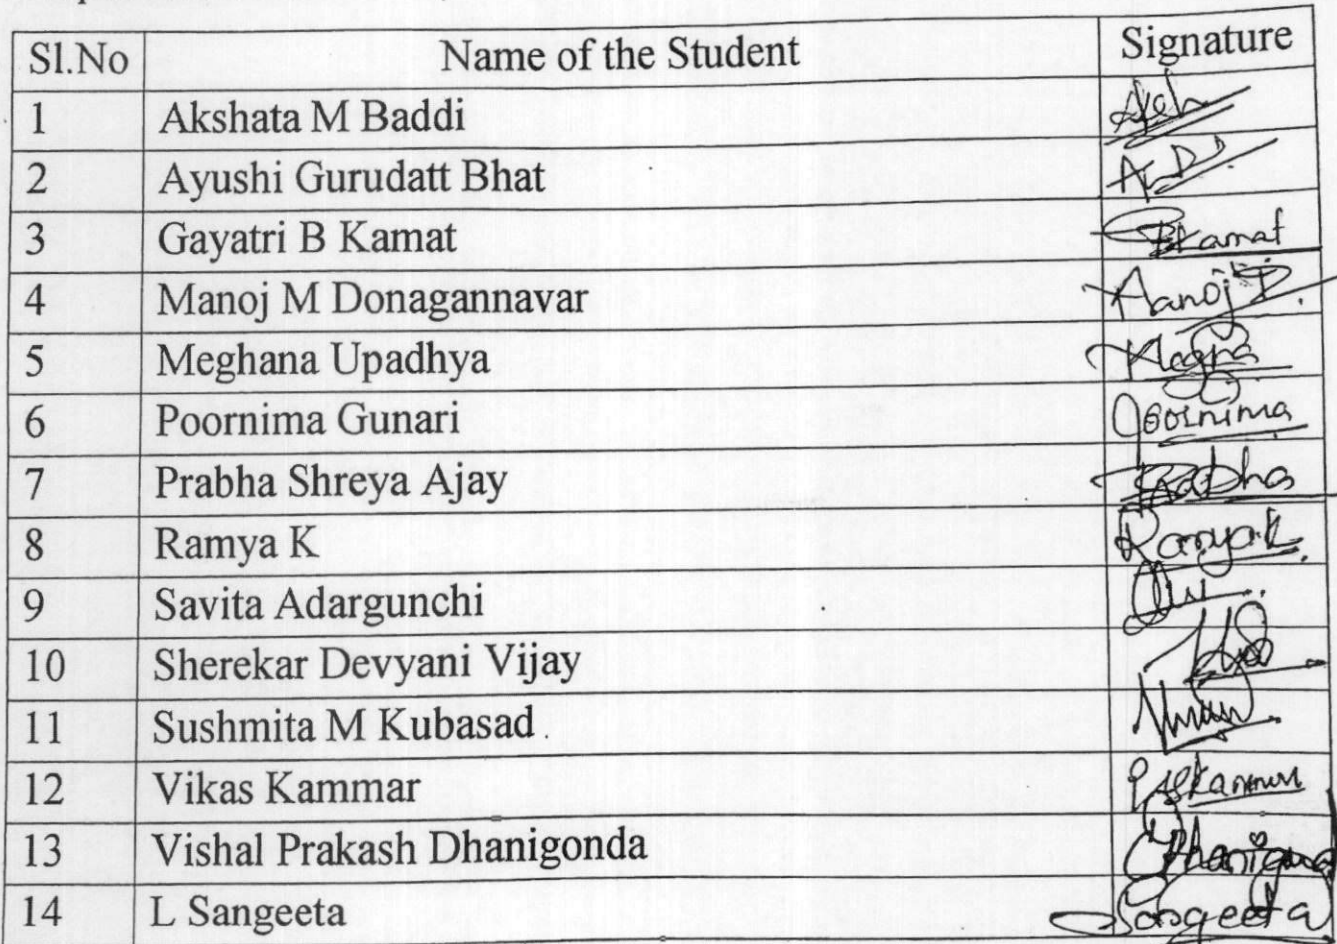 Sl.No Name of the Student Signature
1 Akshata M Baddi
2 Ayushi Gurudatt Bhat
3 Gayatri B Kamat Kamat
4 Manoj M Donagannavar Manoj D.
5 Meghana Upadhya
6 Poornima Gunari Poornima
7 Prabha Shreya Ajay Prabha
8 Ramya K Ramya K.
9 Savita Adargunchi
10 Sherekar Devyani Vijay
11 Sushmita M Kubasad
12 Vikas Kammar
13 Vishal Prakash Dhanigonda
14 L Sangeeta Sangeeta